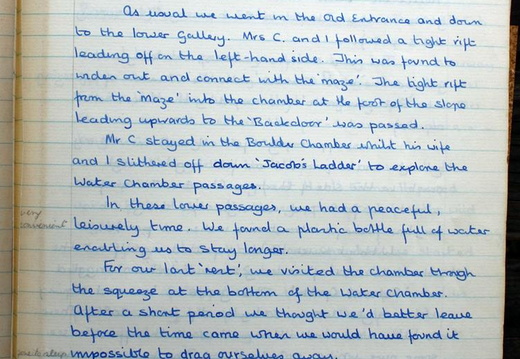 As usual we went in the Old Entrance and down
to the lower Gallery. Mrs C. and I followed a tight rift
leading off on the left-hand side. This was found to
widen out and connect with the 'maze'. The tight rift
from the 'Maze' into the chamber at the foot of the slope
leading upwards to the 'Backdoor' was passed.
Mr C stayed in the Boulder Chamber whilst his wife
and I slithered off down 'Jacob's Ladder' to explore the
Water Chamber passages.
In these lower passages, we had a peaceful,
very
leisurely time. We found a plastic bottle full of water
convenient
enabling us to stay longer.
For our last 'rest', we visited the chamber through
the squeeze at the bottom of the Water Chamber.
After a short period we thought we'd better leave
before the time came when we would have found it
impossible to drag ourselves away.